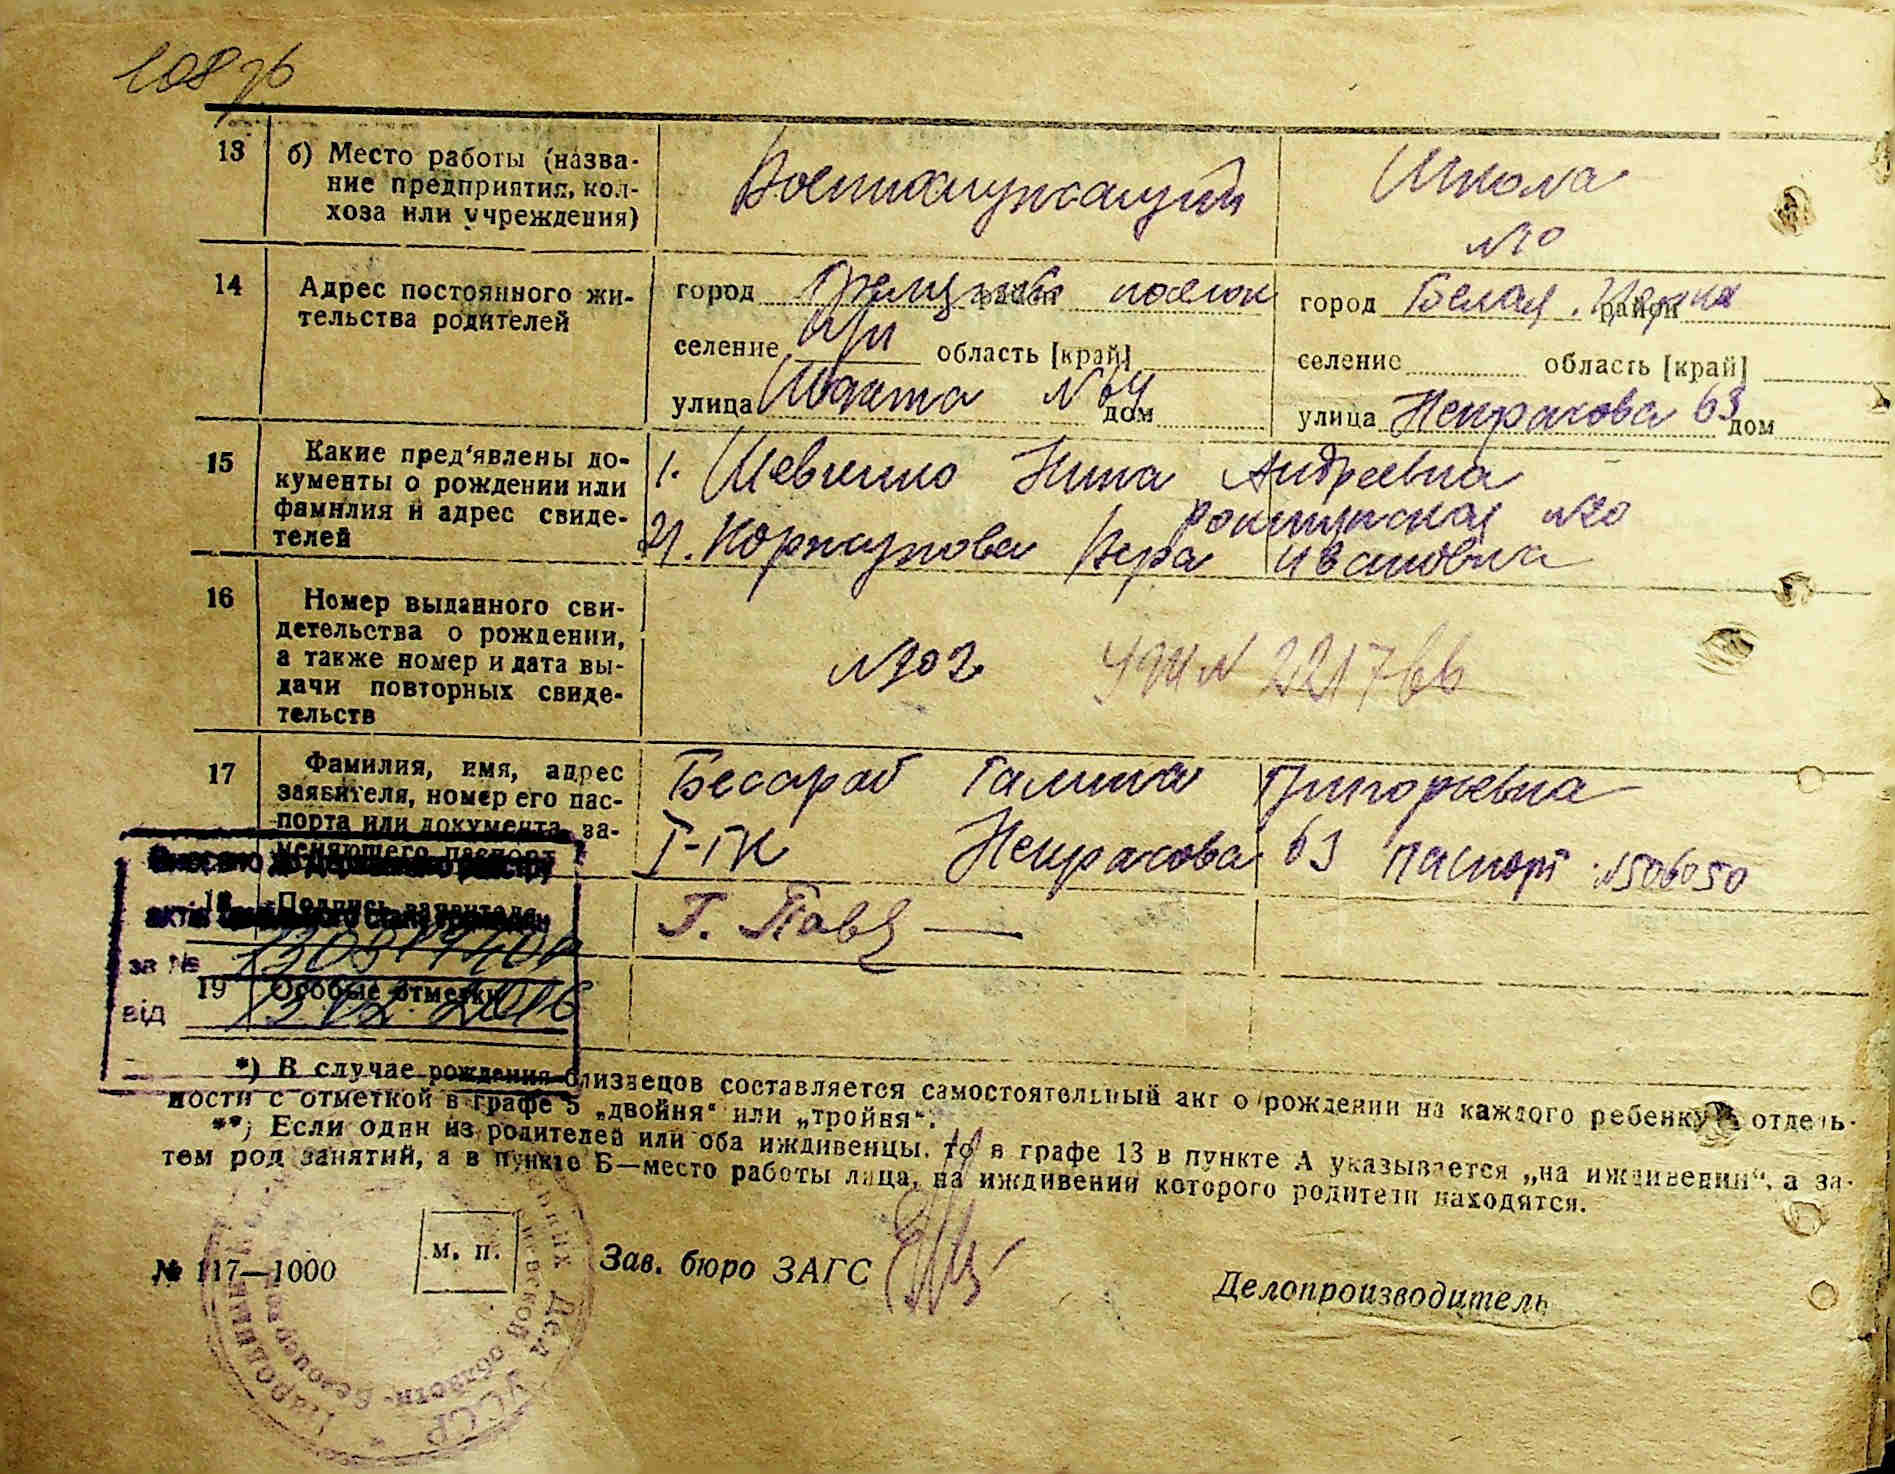 13 б) Место работы (назва-
ние предприятия, кол-
хоза или учреждения)
Военнослужащий
Школа
№10
14 Адрес постоянного жи-
тельства родителей
город район поселок
селение область [край]
улица Шахта № 64 дом
город Белая Церква район
селение область [край]
улица Некрасова 63 дом
15 Какие пред'явлены до-
кументы о рождении или
фамилия и адрес свиде-
телей
1. Шевченко Нина Андреевна
№20
2. Коржукова Вера Ивановна
16 Номер выданного сви-
детельства о рождении,
а также номер и дата вы-
дачи повторных свиде-
тельств
№ 302 № 221766
17 Фамилия, имя, адрес
заявителя, номер его пас-
порта или документа, за-
меняющего паспорт
Бесараб Галина Григорьевна
Некрасова 63 паспорт №506050
18 Подпись заявителя
Г.
за №
19 Особые отметки
від 13.02.2016
*) В случае рождения близнецов составляется самостоятельный акт о рождении на каждого ребенку в отдель-
ности с отметкой в графе 5 „двойня“ или „тройня“.
**) Если один из родителей или оба иждивенцы, то в графе 13 в пункте А указывается „на иждивении“, а за-
тем род занятий, а в пункте Б—место работы лица, на иждивении которого родители находятся.
№ 117—1000
м. п.
Зав. бюро ЗАГС
Делопроизводитель